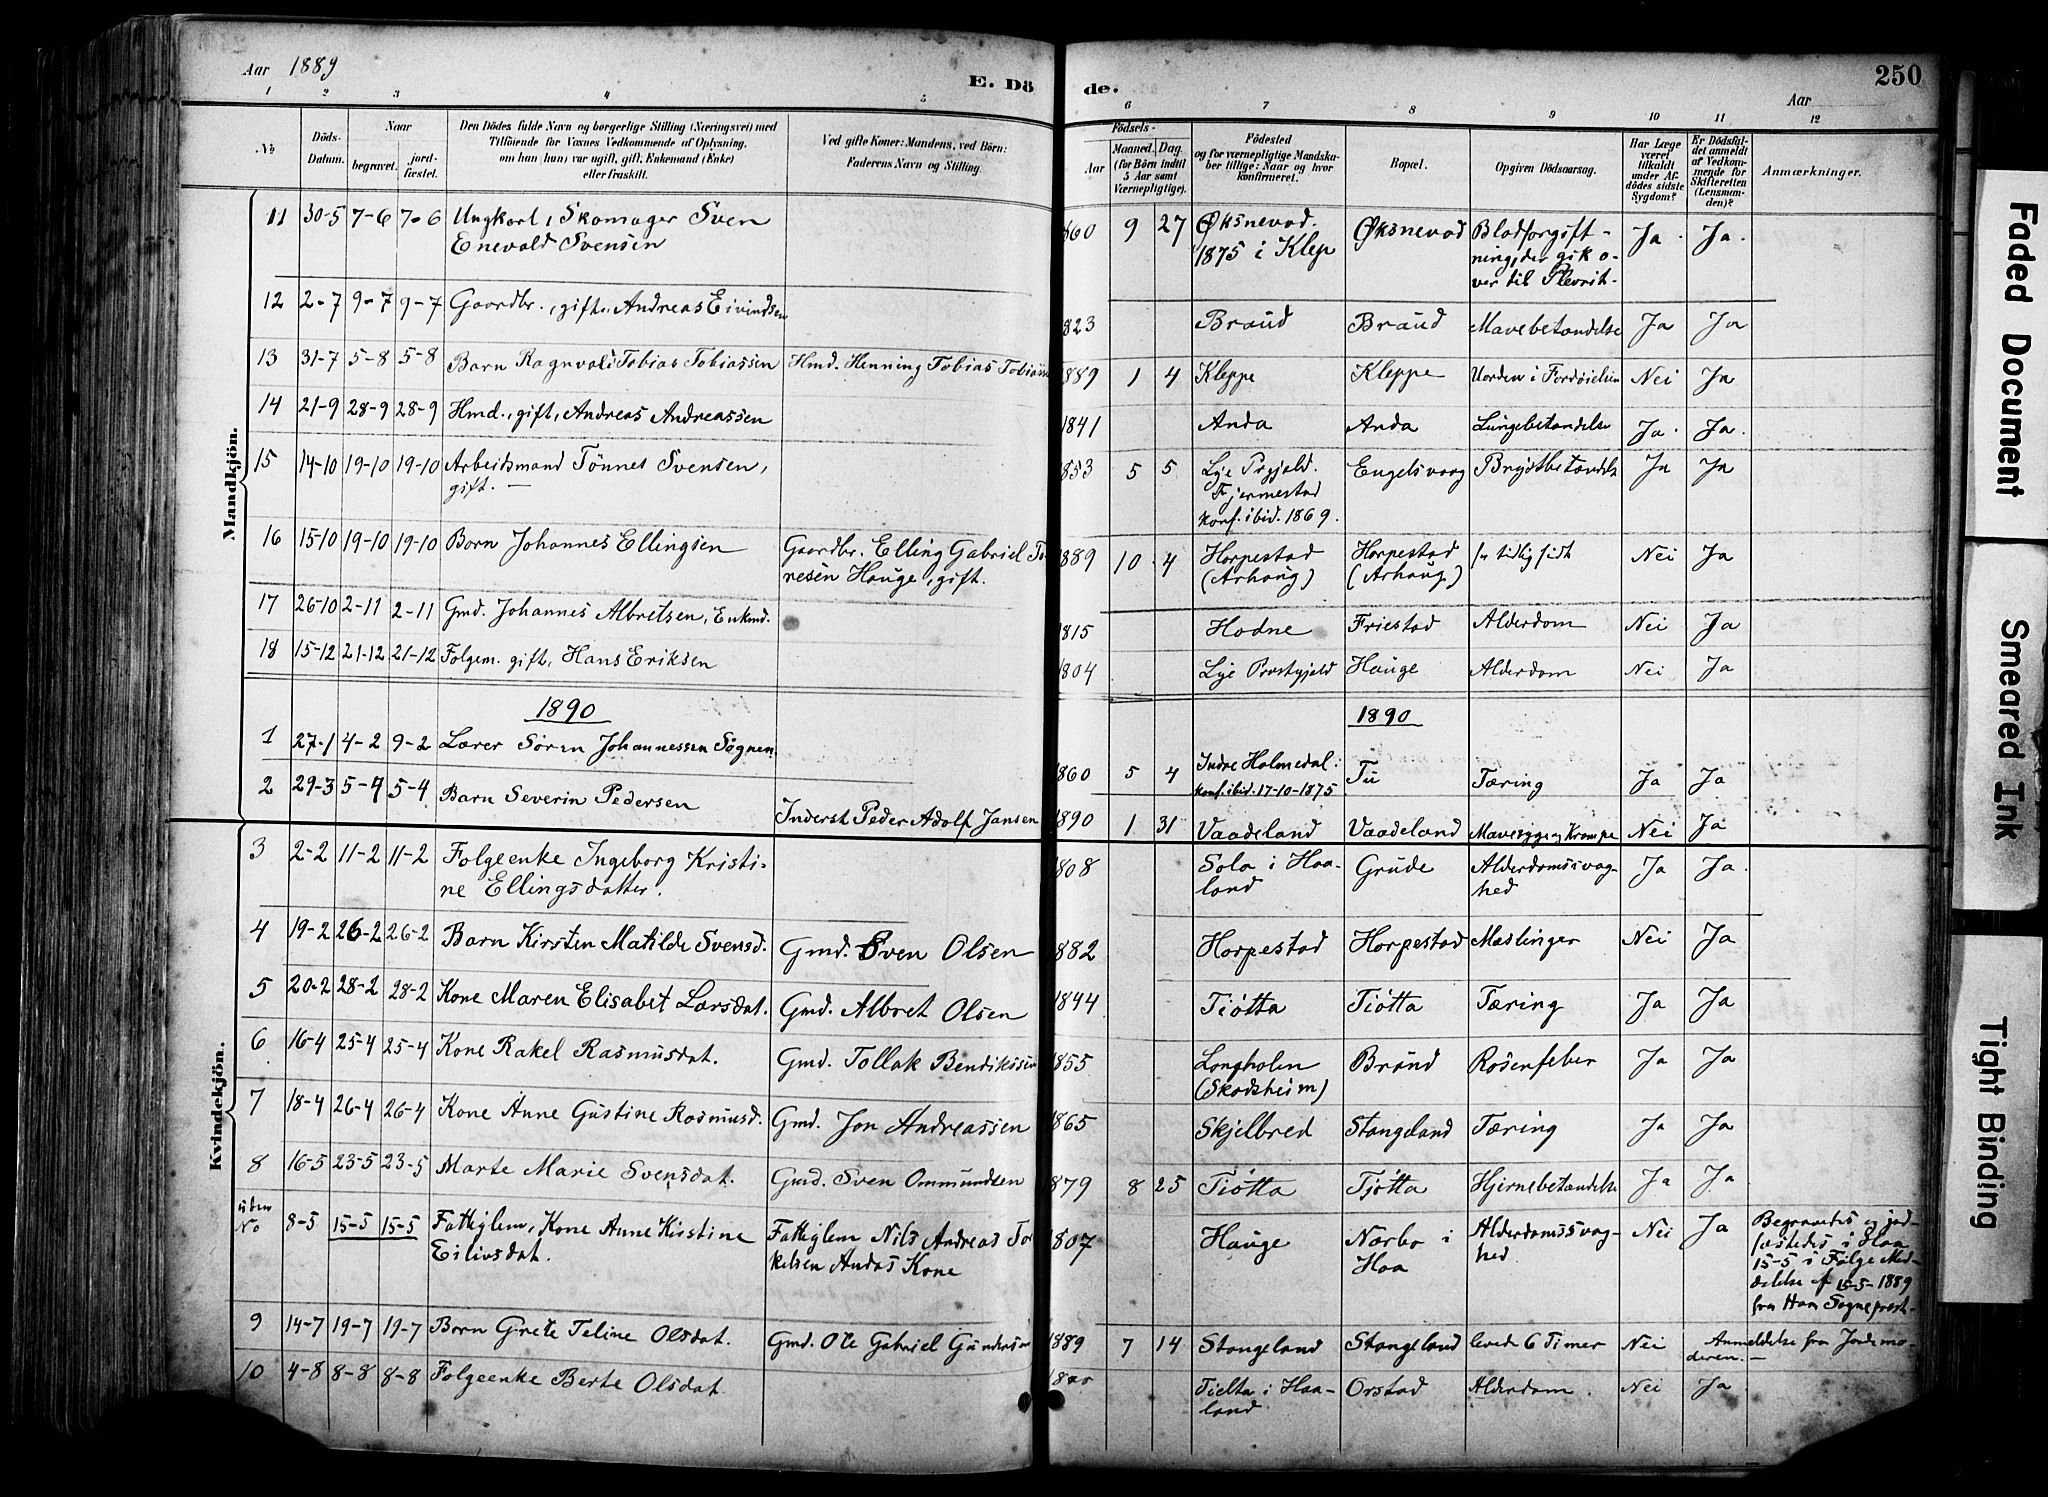 Aar 1889
E. Dö
de.
Aar
250
1 2 3 4 5 6 7 8 9 10 11 12
No
Döds-Datum.
Naar
begravet.
jord-fæstet.
Den Dödes fulde Navn og borgerlige Stilling (Næringsvei) med
Tilföiende for Voxnes Vedkommende af Oplysning,
om han (hun) var ugift, gift, Enkemand (Enke)
eller fraskilt.
Ved gifte Koner: Mandens, ved Börn:
Faderens Navn og Stilling.
Födsels-
Aar
Maaned. Dag.
(for Börn indtil
5 Aar samt
Værnepligtige).
Födested
og for værnepligtige Mandska-
ber tillige: Naar og hvor
konfirmeret.
Bopæl.
Opgiven Dödsaarsag.
Har Læge
været
tilkaldt
under Af-
dödes sidste
Sygdom?
Er Dödsfal-
det anmeldt
af Vedkom-
mende for
Skifteretten
(Lensman-
den)?
Anmærkninger.
Mandkjön.
11 30-5 7-6 7-6 Ungkarl, Skomager Sven
Enevald Svensen
860 9 27 Øksnevad.
1875 i Klep
Øksnevad
Blodforgift-
ning, der gik o-
ver til Plevrit-
Ja. Ja.
12 2-7 9-7 9-7 Gaardbr., gift, Andreas Eivindsen
823 Braud Braud Mavebetændelse Ja Ja
13 31-7 5-8 5-8 Barn Ragnvald Tobias Tobiassen Hmd. Henning Tobias Tobiasse
889 1 4 Kleppe Kleppe Uorden i Fordøielsen Nei Ja
14 21-9 28-9 28-9 Hmd., gift, Andreas Andreassen
1841 Anda Anda Lungebetændelse Ja. Ja.
15 14-10 19-10 19-10 Arbeidsmand Tønnes Svensen,
gift. —
1853 5 5 Lye Prgjeld.
Fjermestad
konf. ibid. 1869.
Engelsvaag Brystbetændelse Ja Ja
16 15-10 19-10 19-10 Barn Johannes Ellingsen Gaardbr. Elling Gabriel Tø
nesen Hauge, gift.
1889 10 4 Horpestad
(Arhaug)
Horpestad
(Arhaug)
for tidlig født Nei Ja
17 26-10 2-11 2-11 Gmd. Johannes Albretsen, Enkmd.
1815 Hodne Friestad Alderdom Nei Ja
18 15-12 21-12 21-12 Folgem. gift, Hans Eriksen
1804 Lye Prestgjeld Hauge Alderdom Nei Ja
1890
1890
1 27-1 4-2 9-2 Lærer Søren Johannessen Sognen
1860 5 4 Indre Holmedal:
konf. ibid. 17-10-1875
Tu Tæring Ja Ja
2 29-3 5-4 5-4 Barn Severin Pedersen Inderst Peder Adolf Jansen
1890 1 31 Vaadeland Vaadeland Mavesyge og Krampe Nei Ja
Kvindekjön.
3 2-2 11-2 11-2 Folgeenke Ingeborg Kristi-
ne Ellingsdatter.
808 Sola i Haa-
land
Grude Alderdomssvag-
hed
Ja Ja.
4 19-2 26-2 26-2 Barn Kirsten Matilde Svensd. Gmd. Sven Olsen
882 Horpestad Horpestad Mæslinger Nei Ja
5 20-2 28-2 28-2 Kone Maren Elisabet Larsdat. Gmd. Albret Olsen
1844 Tiøtta Tiøtta Tæring Ja Ja
6 16-4 25-4 25-4 Kone Rakel Rasmusdat. Gmd. Tollak Bendikssen
1855 Longholen
(Skadsheim)
Braud Rosenfeber Ja Ja
7 18-4 26-4 26-4 Kone Anne Gustine Rasmusd. Gmd. Jon Andreassen
1865 Skjelbred Stangeland Tæring Ja Ja
8 16-5 23-5 23-5 Marte Marie Svensdat. Gmd. Sven Ommundsen
879 8 25 Tiøtta Tjøtta Hjernebetændelse Ja Ja
uden
No 8-5 15-5 15-5 Fattiglem, Kone Anne Kirstine
Eilivsdat.
Fattiglem Nils Andreas Tor
kelsen Andas Kone
1807 Hauge Nærbo i
Haa
Alderdomssvag-
hed
Nei Ja
Begravedes og jord-
fæstedes i Haa
15-5 i Følge Med-
delelse af 15-5-1889
fra Haa Sogneprest-
9 14-7 19-7 19-7 Barn Grete Teline Olsdat. Gmd. Ole Gabriel Gundersen
1889 7 14 Stangeland Stangeland levede 6 Timer Nei Anmeldelse fra Jordemo-
deren. —
10 4-8 8-8 8-8 Folgeenke Berte Olsdat.
Tjelta i Haa-
land
Orstad Alderdom. Nei Ja
Faded Document
Smeared Ink
Tight Binding